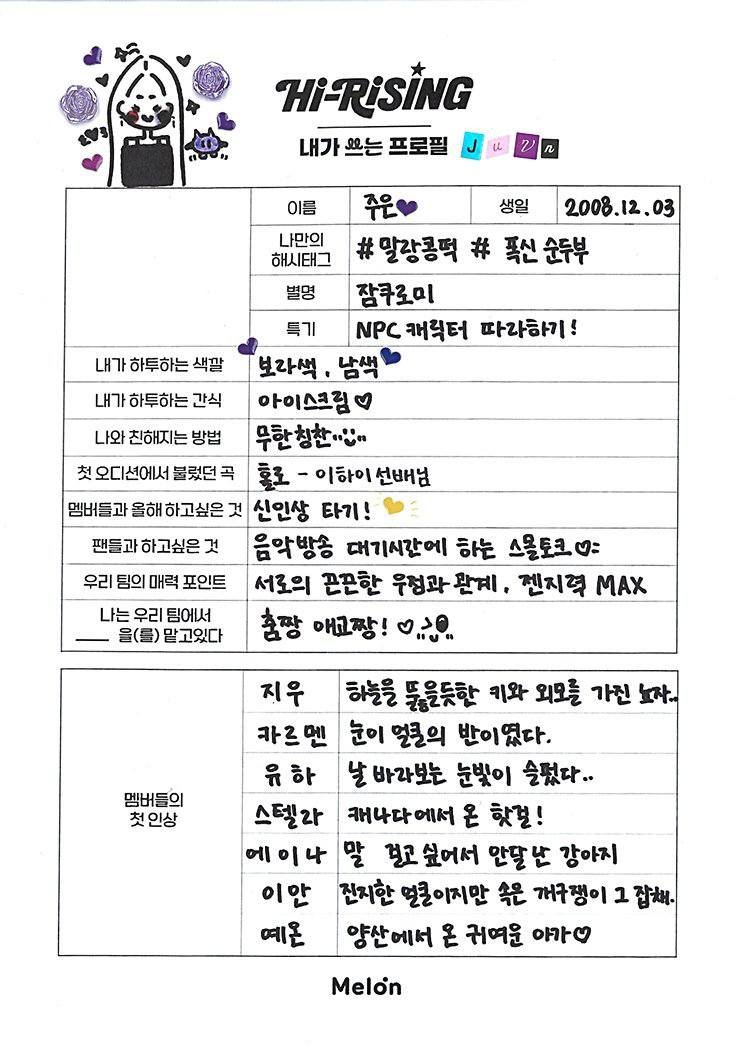 Hi-RiSiNG
내가 쓰는 프로필 Juun
이름 주은 생일 2008.12.03
나만의
해시태그 #말랑콩떡 # 폭신 순두부
별명 잠쿠로미
특기 NPC 캐릭터 따라하기!
내가 하투하는 색깔 보라색, 남색
내가 하투하는 간식 아이스크림♡
나와 친해지는 방법 무한칭찬
첫 오디션에서 불렀던 곡 홀로 - 이하이 선배님
멤버들과 올해 하고싶은 것 신인상 타기!
팬들과 하고싶은 것 음악방송 대기시간에 하는 스몰토크♡
우리 팀의 매력 포인트 서로의 끈끈한 우정과 관계, 젠지력 MAX
나는 우리 팀에서
___ 을(를) 맡고있다 춤짱 애교짱! ♡
멤버들의
첫 인상
지우 하늘을 뚫을듯한 키와 외모를 가진 뇨자..
카르멘 눈이 얼굴의 반이였다.
유하 날 바라보는 눈빛이 슬펐다..
스텔라 캐나다에서 온 핫걸!
에이나 말 걸고 싶어서 안달난 강아지
이안 진지한 얼굴이지만 속은 개구쟁이 그 잡채.
예온 양산에서 온 귀여운 아가♡
Melon